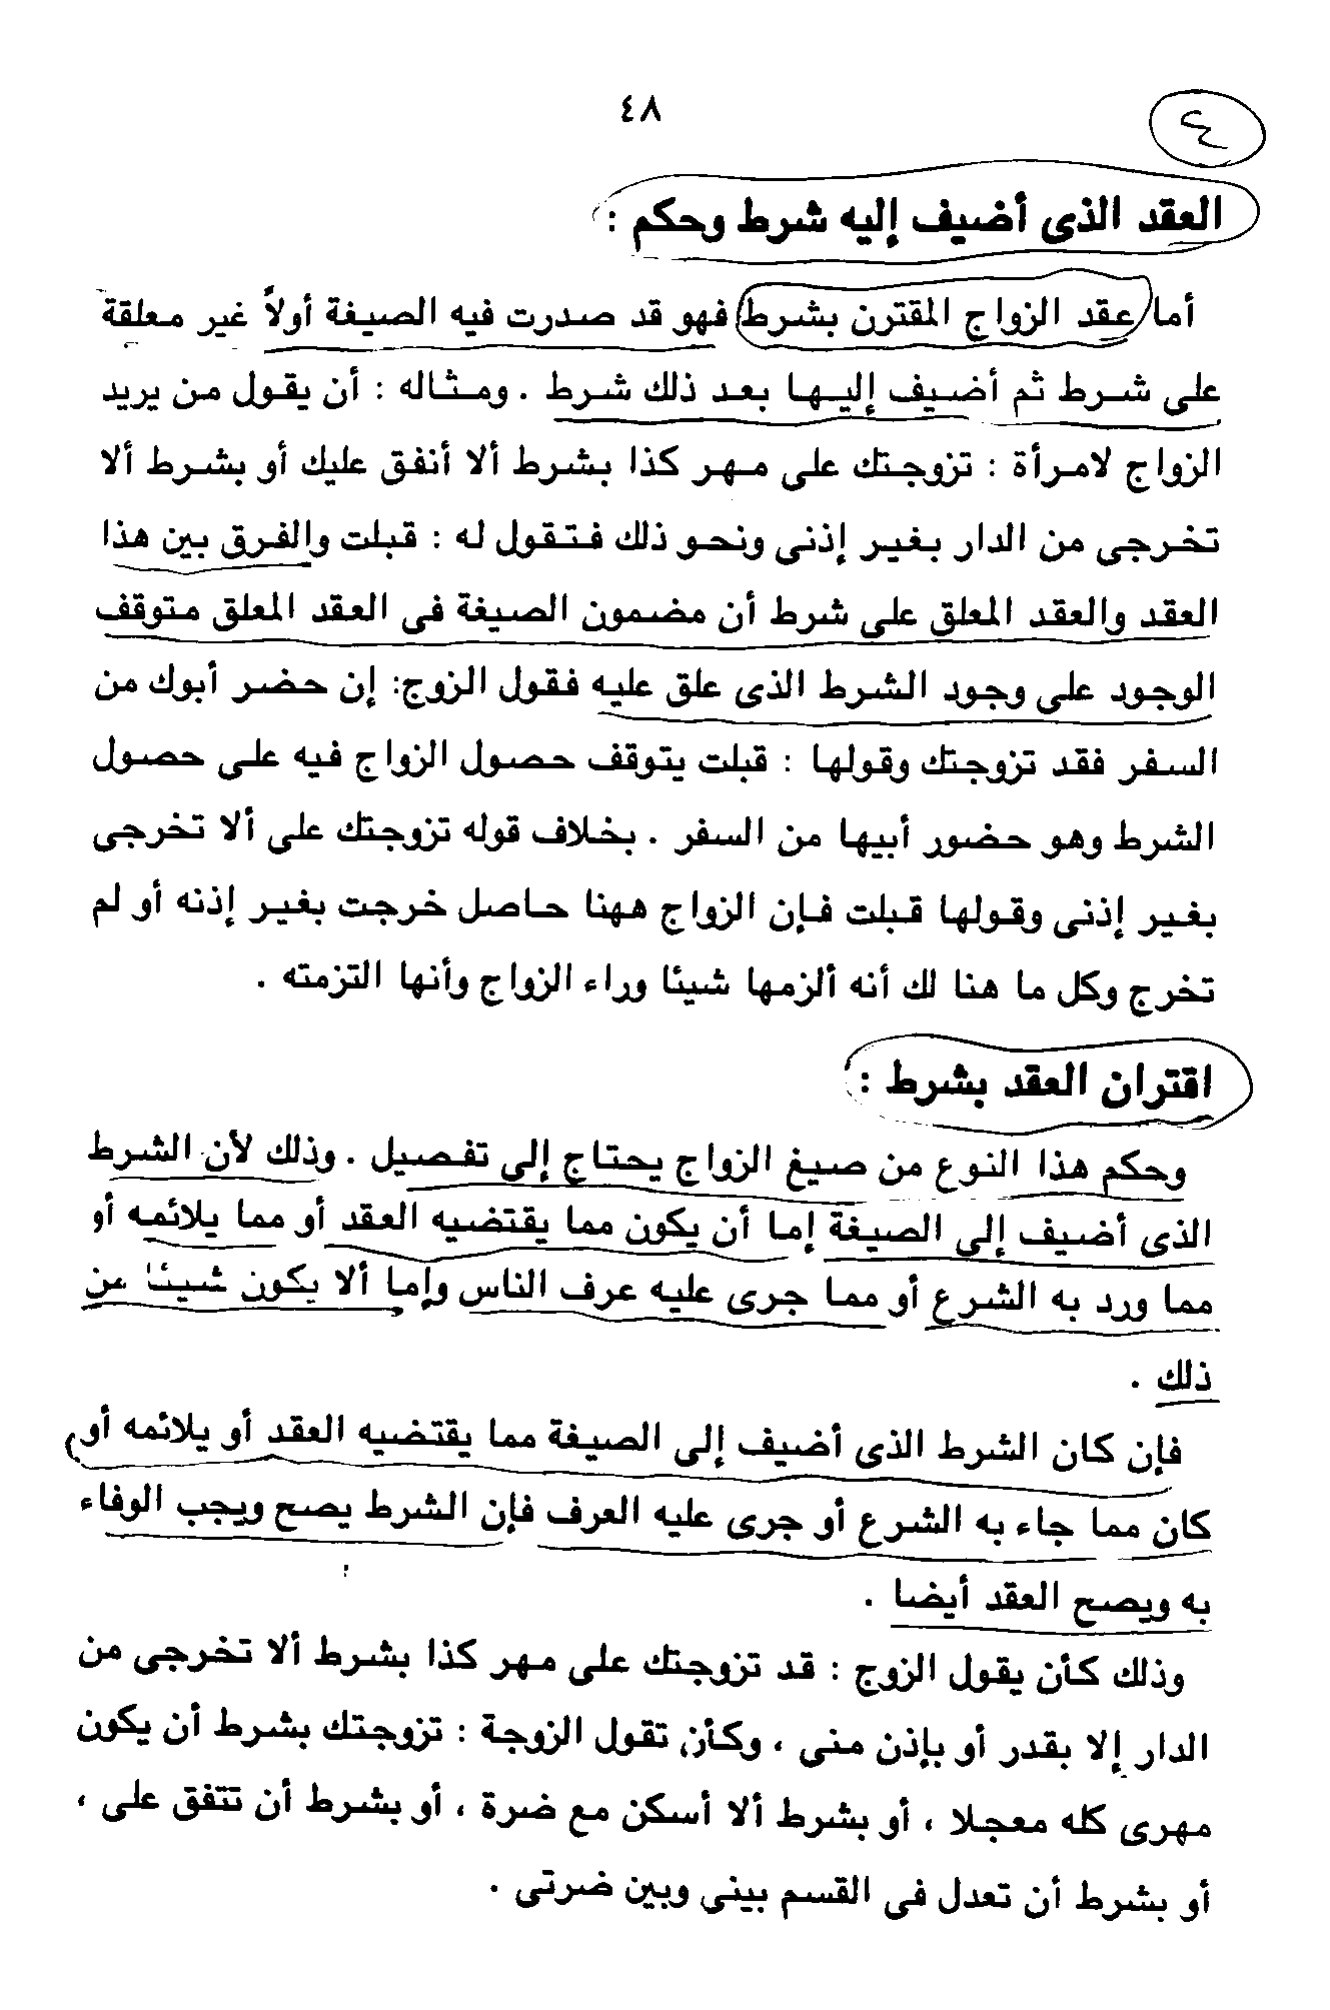 ٤٨
٤
العقد الذى أضيف إليه شرط وحكم :
أما عقد الزواج المقترن بشرط فهو قد صدرت فيه الصيغة أولاً غير معلقة
على شرط ثم أضيف إليها بعد ذلك شرط . ومثاله : أن يقول من يريد
الزواج لامرأة : تزوجتك على مهر كذا بشرط ألا أنفق عليك أو بشرط ألا
تخرجى من الدار بغير إذنى ونحو ذلك فتقول له : قبلت والفرق بين هذا
العقد والعقد المعلق على شرط أن مضمون الصيغة فى العقد المعلق متوقف
الوجود على وجود الشرط الذى علق عليه فقول الزوج: إن حضر أبوك من
السفر فقد تزوجتك وقولها : قبلت يتوقف حصول الزواج فيه على حصول
الشرط وهو حضور أبيها من السفر . بخلاف قوله تزوجتك على ألا تخرجى
بغير إذنى وقولها قبلت فإن الزواج ههنا حاصل خرجت بغير إذنه أو لم
تخرج وكل ما هنا لك أنه ألزمها شيئا وراء الزواج وأنها التزمته .
اقتران العقد بشرط :
وحكم هذا النوع من صيغ الزواج يحتاج إلى تفصيل . وذلك لأن الشرط
الذى أضيف إلى الصيغة إما أن يكون مما يقتضيه العقد أو مما يلائمه أو
مما ورد به الشرع أو مما جرى عليه عرف الناس وإما ألا يكون شيئا من
ذلك .
فإن كان الشرط الذى أضيف إلى الصيغة مما يقتضيه العقد أو يلائمه أو
كان مما جاء به الشرع أو جرى عليه العرف فإن الشرط يصح ويجب الوفاء
به ويصح العقد أيضا .
وذلك كأن يقول الزوج : قد تزوجتك على مهر كذا بشرط ألا تخرجى من
الدار إلا بقدر أو بإذن منى ، وكأن تقول الزوجة : تزوجتك بشرط أن يكون
مهرى كله معجلا ، أو بشرط ألا أسكن مع ضرة ، أو بشرط أن تتفق على ،
أو بشرط أن تعدل فى القسم بينى وبين ضرتى .